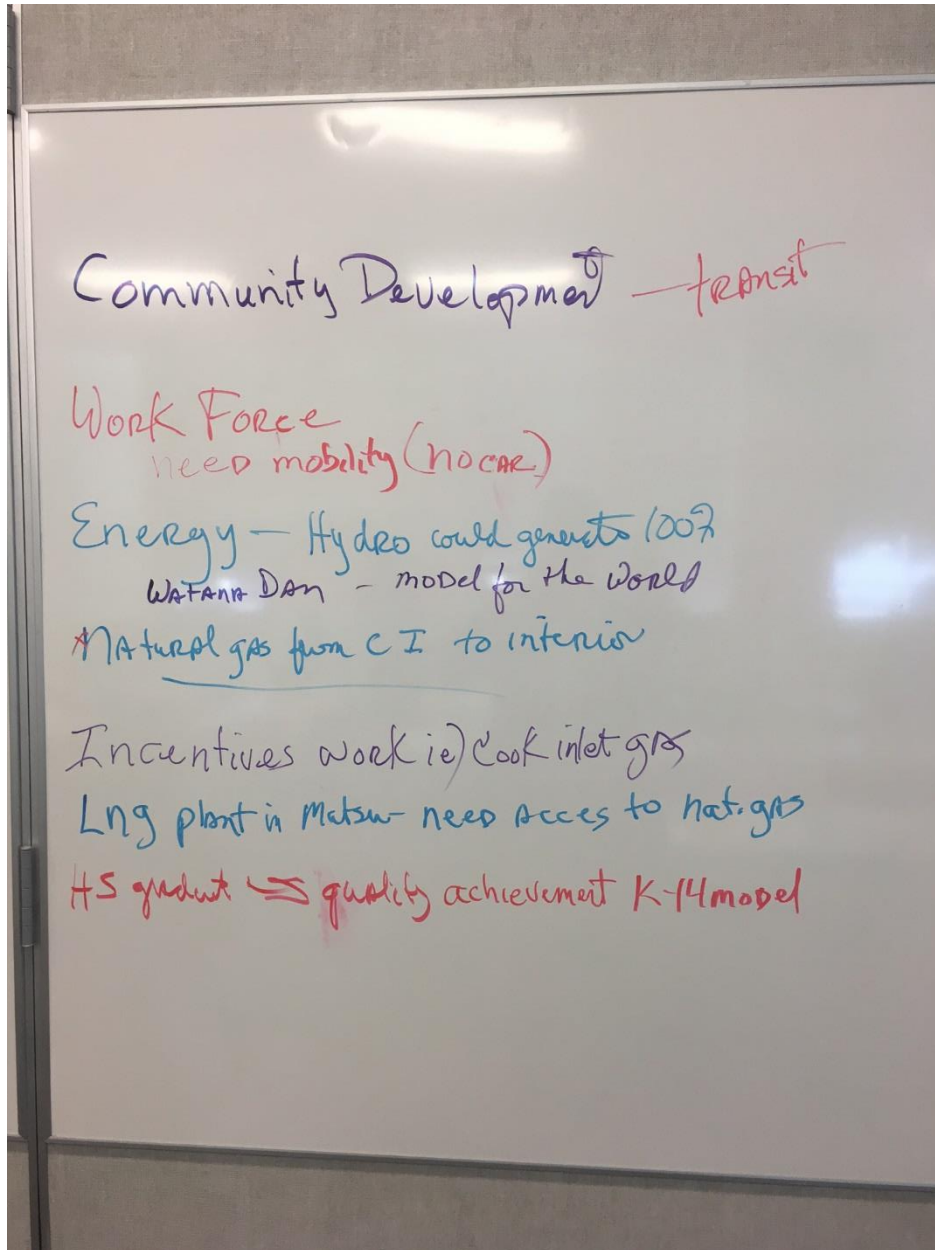 Community Development — transit
Work Force
need mobility (no car)
Energy — Hydro could generate 100%
Watana Dam - model for the World
*Natural gas from C I to interior
Incentives work ie) Cook inlet gas
Lng plant in Matsu- need Acces to nat. gas
HS quality achievement K-14 model